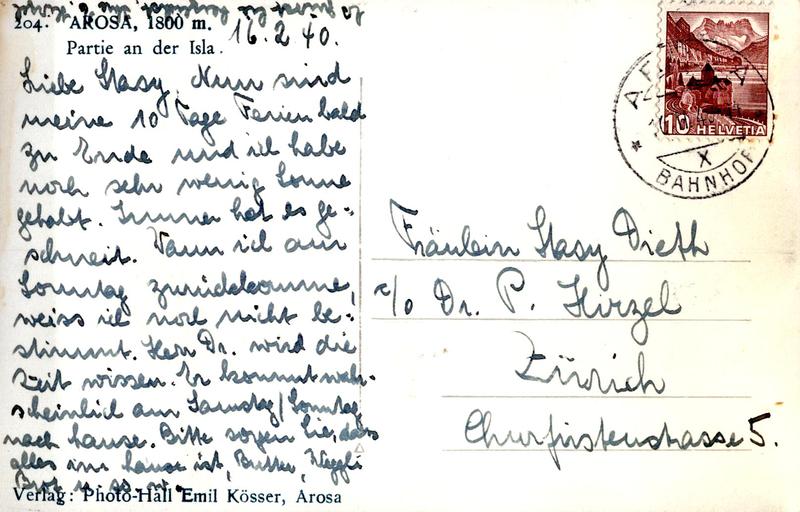 204. AROSA, 1800 m.
Partie an der Isla.
16.2.40.
Liebe Stasy. Nun sind
meine 10 Tage Ferien bald
zu Ende und ich habe
noch sehr wenig Sonne
gehabt. Immer hat es ge-
schneit. Wann ich am
Sonntag zurückkomme,
weiss ich noch nicht be-
stimmt. Herr Dr. wird die
Zeit wissen. Er kommt wahr-
scheinlich am Samstag/Sonntag
nach hause. Bitte sorgen Sie, dass
alles im hause ist, Butter, Weggli
Brot u. s. w.
Verlag: Photo-Hall Emil Kösser, Arosa
HELVETIA
10
BAHNHOF
X
Fräulein Stasy Dieth
c/o Dr. P. Hirzel
Zürich
Churfirstenstrasse 5.